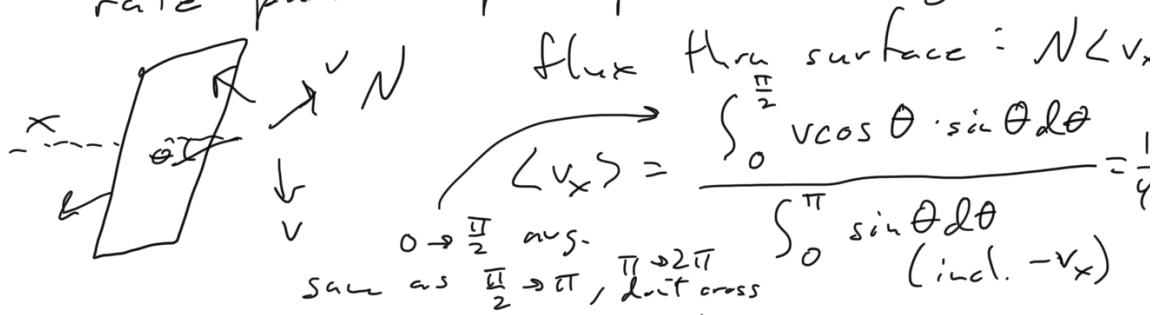 rate
flux thru surface : N<v_x
x θ v N v
<v_x> = ∫_0^{π/2} v cos θ · sin θ dθ / ∫_0^π sin θ dθ = 1/4
(incl. -v_x)
0 → π/2 avg.
same as π/2 → π, π → 2π don't cross